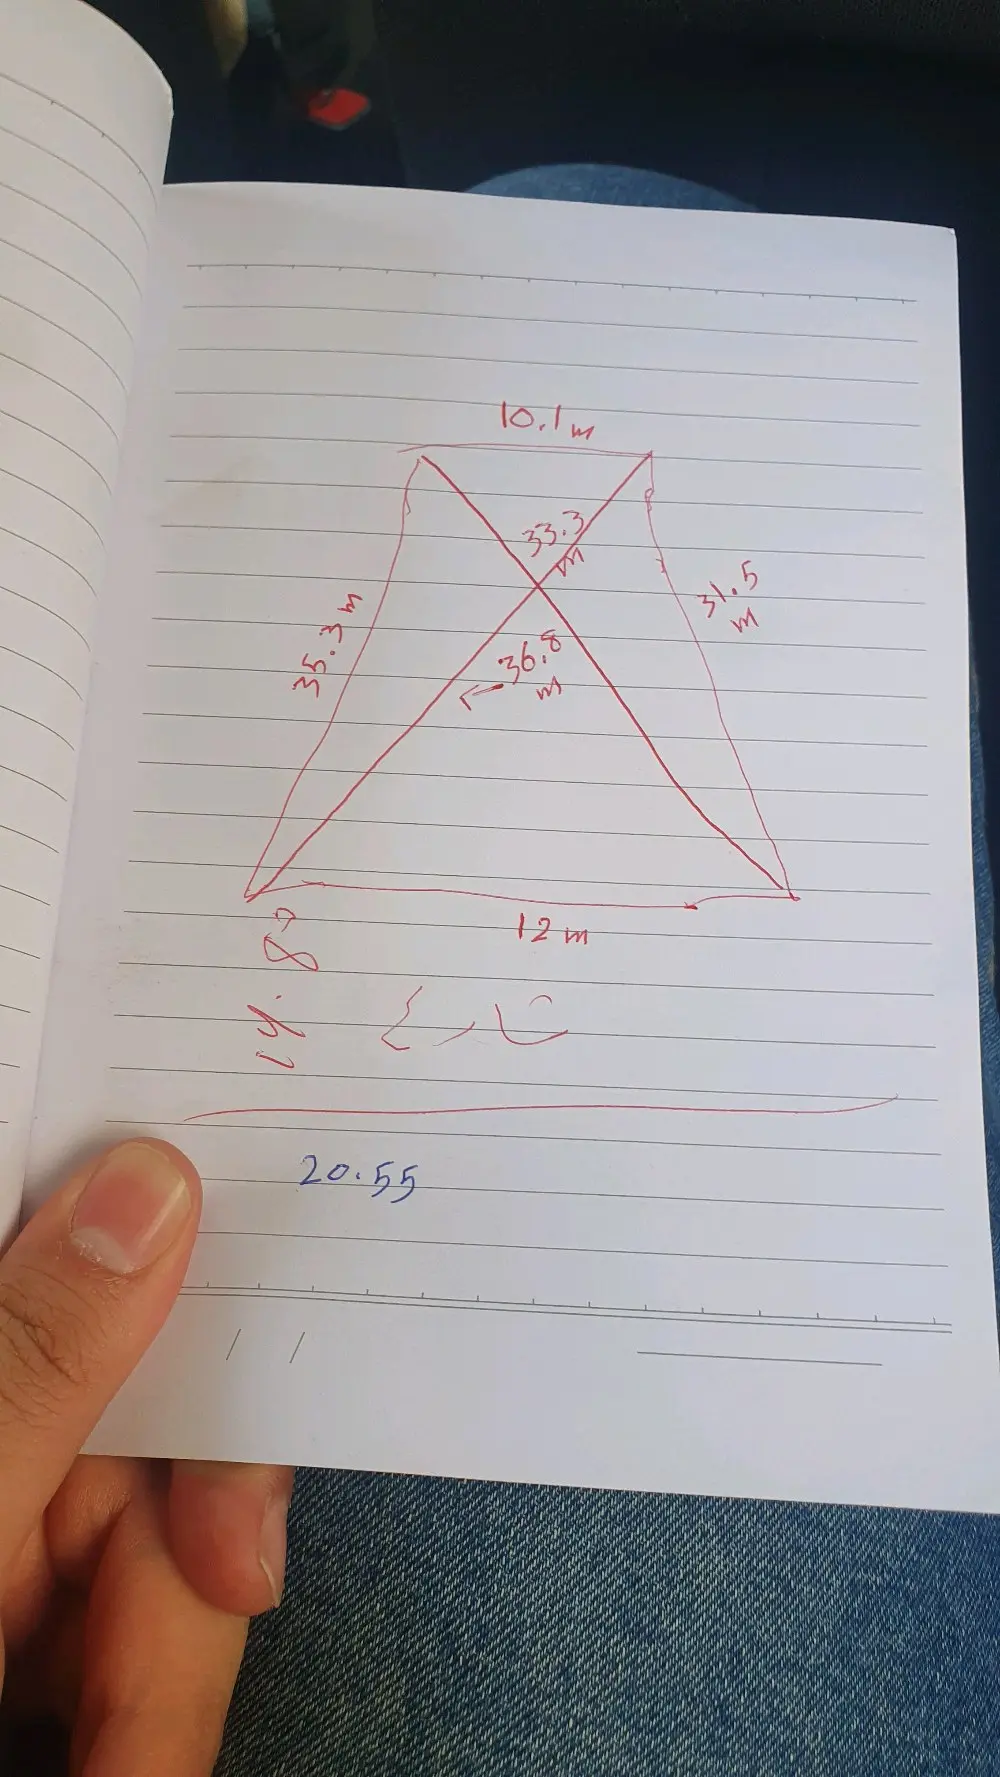 10.1 m
33.3
m
31.5
m
35.3 m
36.8
m
12 m
20.55